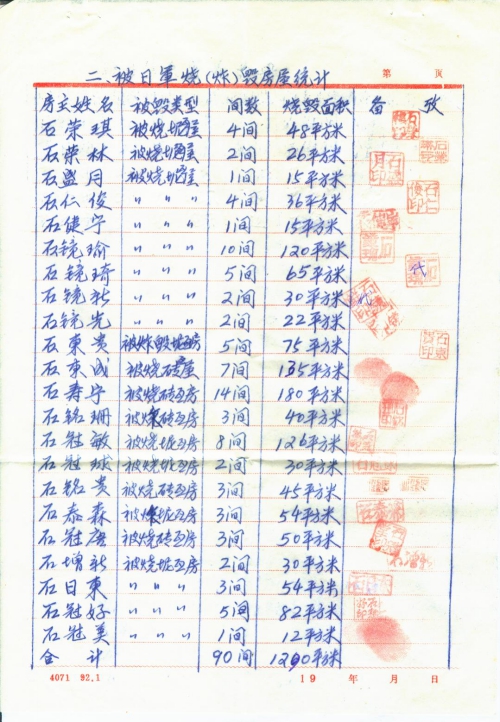 第 页
二、被日軍烧(炸)毁房屋统计
房主姓名 被毁类型 间数 烧毁面积 备 攷
石荣琪 被烧坭屋 4间 48平方米
石荣林 被烧坭屋 2间 26平方米
石盟月 被烧坭屋 1间 15平方米
石仁俊 〃 〃 〃 4间 36平方米
石健宁 〃 〃 〃 1间 15平方米
石镜瑜 〃 〃 〃 10间 120平方米
石镜琦 〃 〃 〃 5间 65平方米 代
石镜新 〃 〃 〃 2间 30平方米 代
石镜光 〃 〃 〃 2间 22平方米
石東贵 被炸毁坭房 5间 75平方米
石東成 被烧砖屋 7间 135平方米
石寿宁 被烧砖瓦房 14间 180平方米
石铭珊 被烧砖瓦房 3间 40平方米
石冠敏 被烧坭瓦房 8间 126平方米
石冠球 被烧坭瓦房 2间 30平方米
石铭贵 被烧砖瓦房 3间 45平方米
石泰森 被烧坭瓦房 3间 54平方米
石冠康 被烧砖瓦房 3间 50平方米
石增新 被烧坭瓦房 2间 30平方米
石日東 〃 〃 〃 3间 54平方米
石冠好 〃 〃 〃 5间 82平方米
石冠美 〃 〃 〃 1间 12平方米
合 计 90间 1200平方米
4071 92.1 19 年 月 日